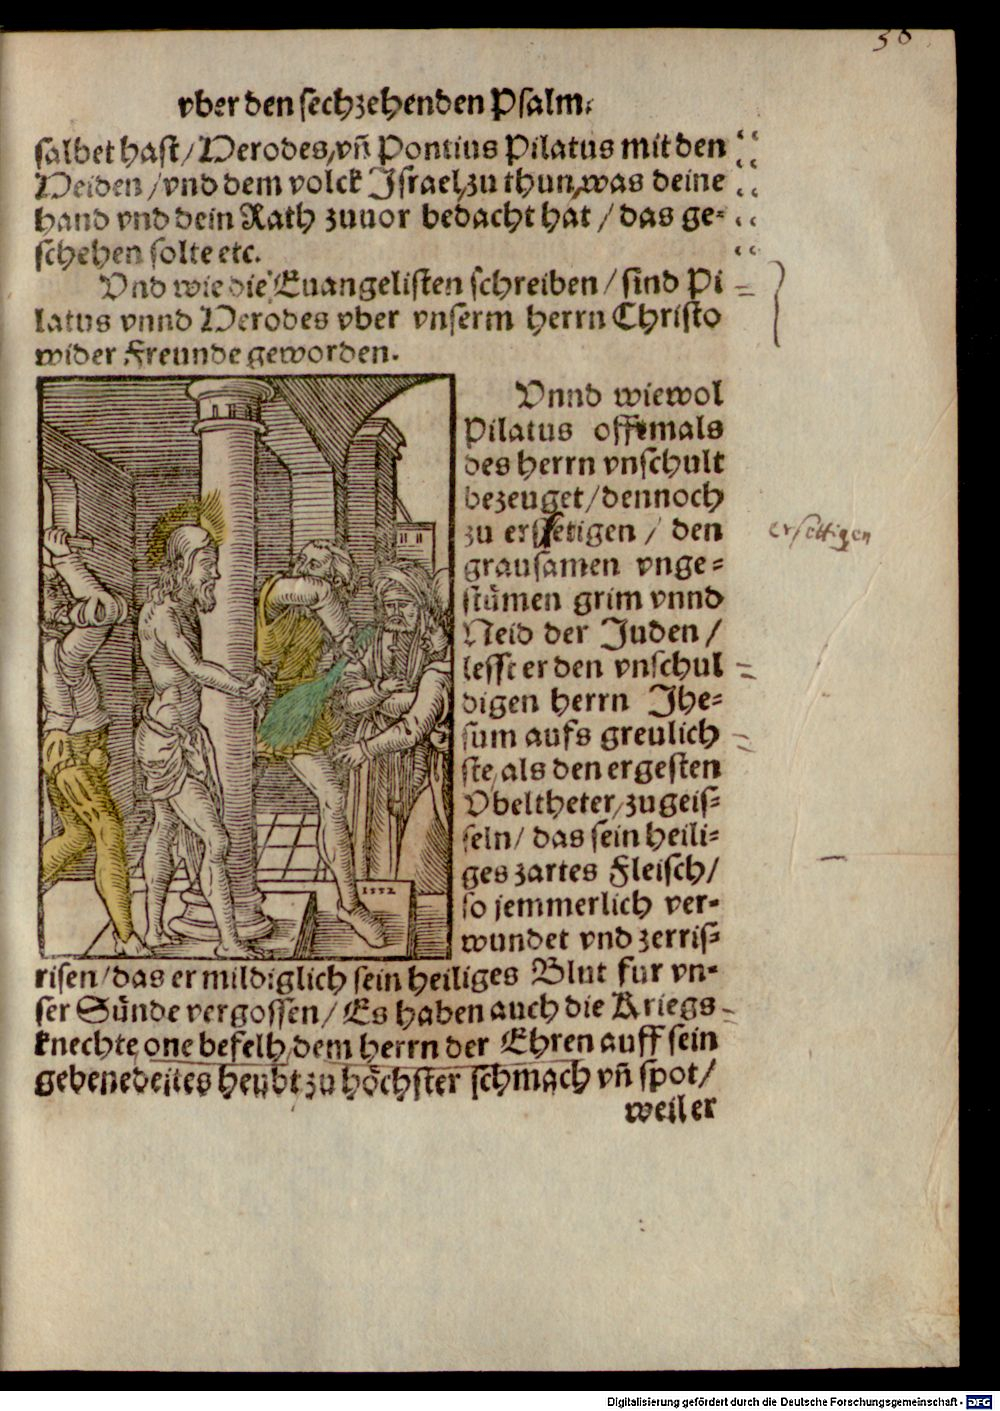 38
vber den sechzehenden Psalm.
salbet hast/ Herodes, vñ Pontius Pilatus mit den
Heiden/ vnd dem volck Jsrael, zu thun, was deine
hand vnd dein Rath zuuor bedacht hat/ das ge=
schehen solte etc.
Vnd wie die Euangelisten schreiben/ sind Pi
latus vnnd Herodes vber vnserm herrn Christo
wider Freunde geworden.
Vnnd wiewol
Pilatus offtmals
des herrn vnschult
bezeuget/ dennoch
zu ersettigen/ den
ersettigen
grausamen vnge=
stümen grim vnnd
Neid der Juden/
lesst er den vnschul
digen herrn Jhe=
sum aufs greulich
ste, als den ergesten
Vbeltheter, zu geis=
seln/ das sein heili=
ges zartes Fleisch/
so jemmerlich ver=
wundet vnd zerris=
1552
risen/ das er mildiglich sein heiliges Blut fur vn=
ser Sünde vergossen/ Es haben auch die Kriegs
knechte, one befelh, dem herrn der Ehren auff sein
gebenedeites heubt zu höchster schmach vñ spot/
weil er
Digitalisierung gefördert durch die Deutsche Forschungsgemeinschaft - DFG